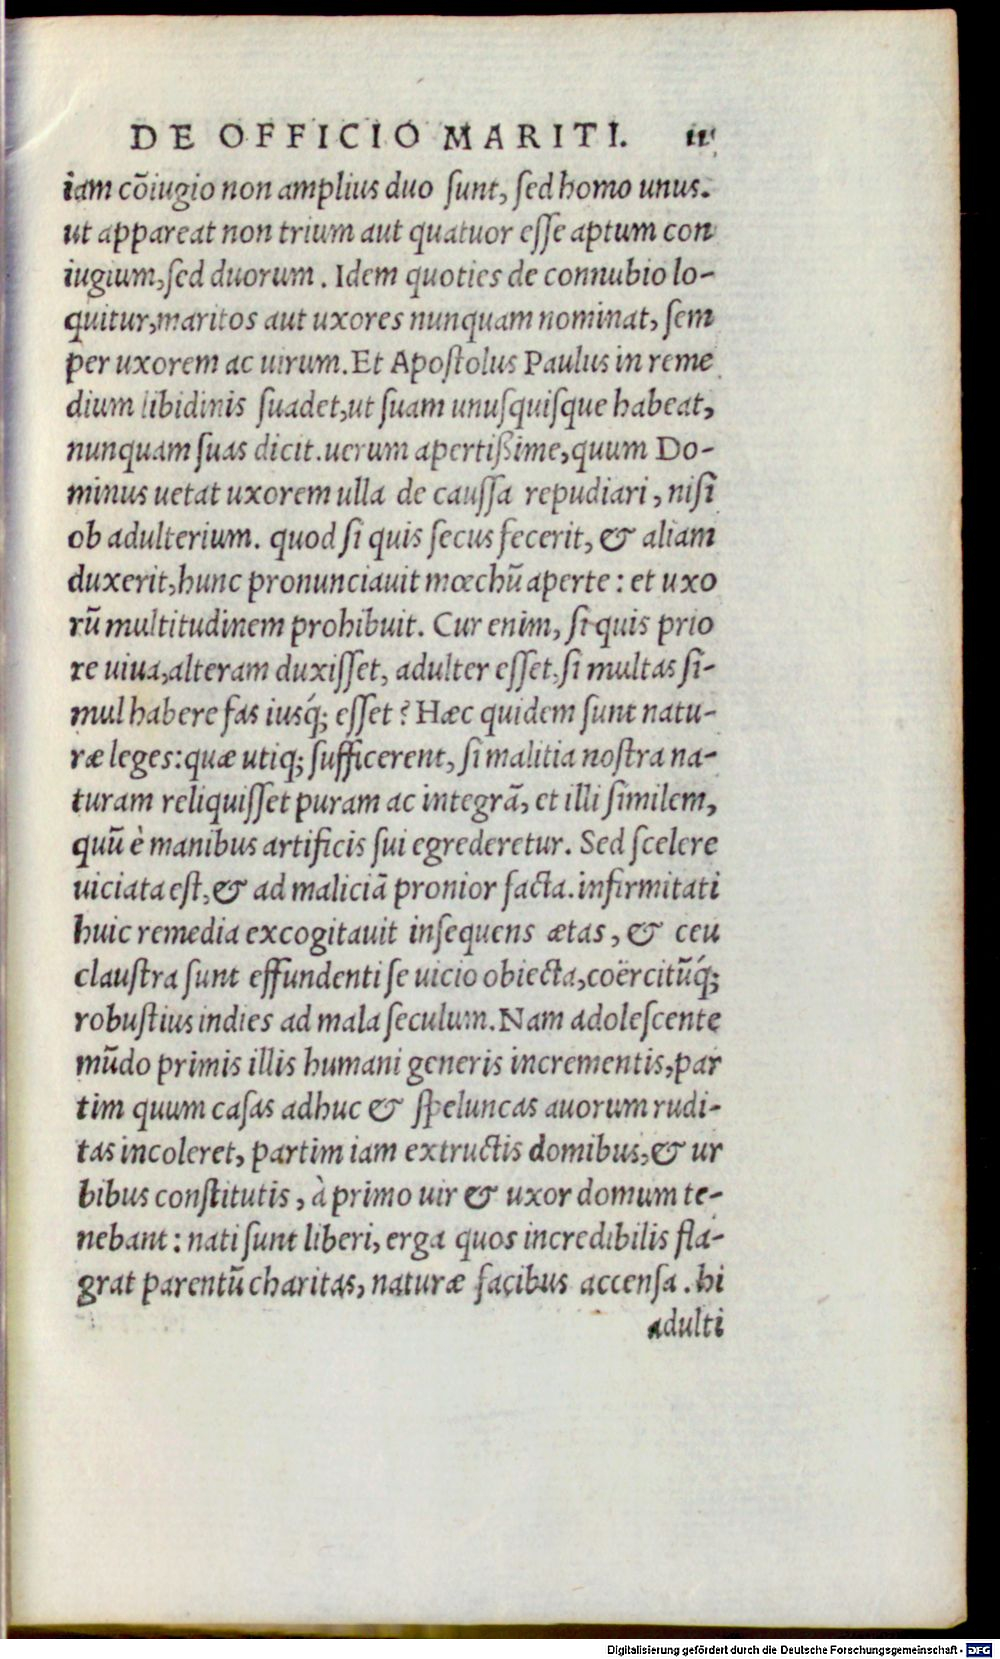 DE OFFICIO MARITI. 11
iam cõiugio non amplius duo ſunt, ſed homo unus.
ut appareat non trium aut quatuor eſſe aptum con
iugium, ſed duorum. Idem quoties de connubio lo-
quitur, maritos aut uxores nunquam nominat, ſem
per uxorem ac uirum. Et Apoſtolus Paulus in reme
dium libidinis ſuadet, ut ſuam unuſquiſque habeat,
nunquam ſuas dicit. uerum apertißime, quum Do-
minus uetat uxorem ulla de cauſſa repudiari, niſi
ob adulterium. quod ſi quis ſecus fecerit, & aliam
duxerit, hunc pronunciauit mœchũ aperte: et uxo
rũ multitudinem prohibuit. Cur enim, ſi quis prio
re uiua, alteram duxiſſet, adulter eſſet, ſi multas ſi-
mul habere fas iusq́; eſſet? Hæc quidem ſunt natu-
ræ leges: quæ utiq; ſufficerent, ſi malitia noſtra na-
turam reliquiſſet puram ac integrã, et illi ſimilem,
quũ è manibus artificis ſui egrederetur. Sed ſcelere
uiciata eſt, & ad maliciã pronior facta. infirmitati
huic remedia excogitauit inſequens ætas, & ceu
clauſtra ſunt effundenti ſe uicio obiecta, coërcitũq́;
robuſtius indies ad mala ſeculum. Nam adoleſcente
mũdo primis illis humani generis incrementis, par
tim quum caſas adhuc & ſpeluncas auorum rudi-
tas incoleret, partim iam extructis domibus, & ur
bibus conſtitutis, à primo uir & uxor domum te-
nebant: nati ſunt liberi, erga quos incredibilis fla-
grat parentũ charitas, naturæ facibus accenſa. hi
adulti
Digitalisierung gefördert durch die Deutsche Forschungsgemeinschaft - DFG